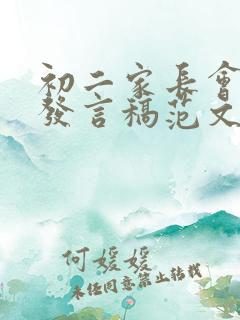 初二家长會
發言稿范文
何媛媛
未经同意禁止转载